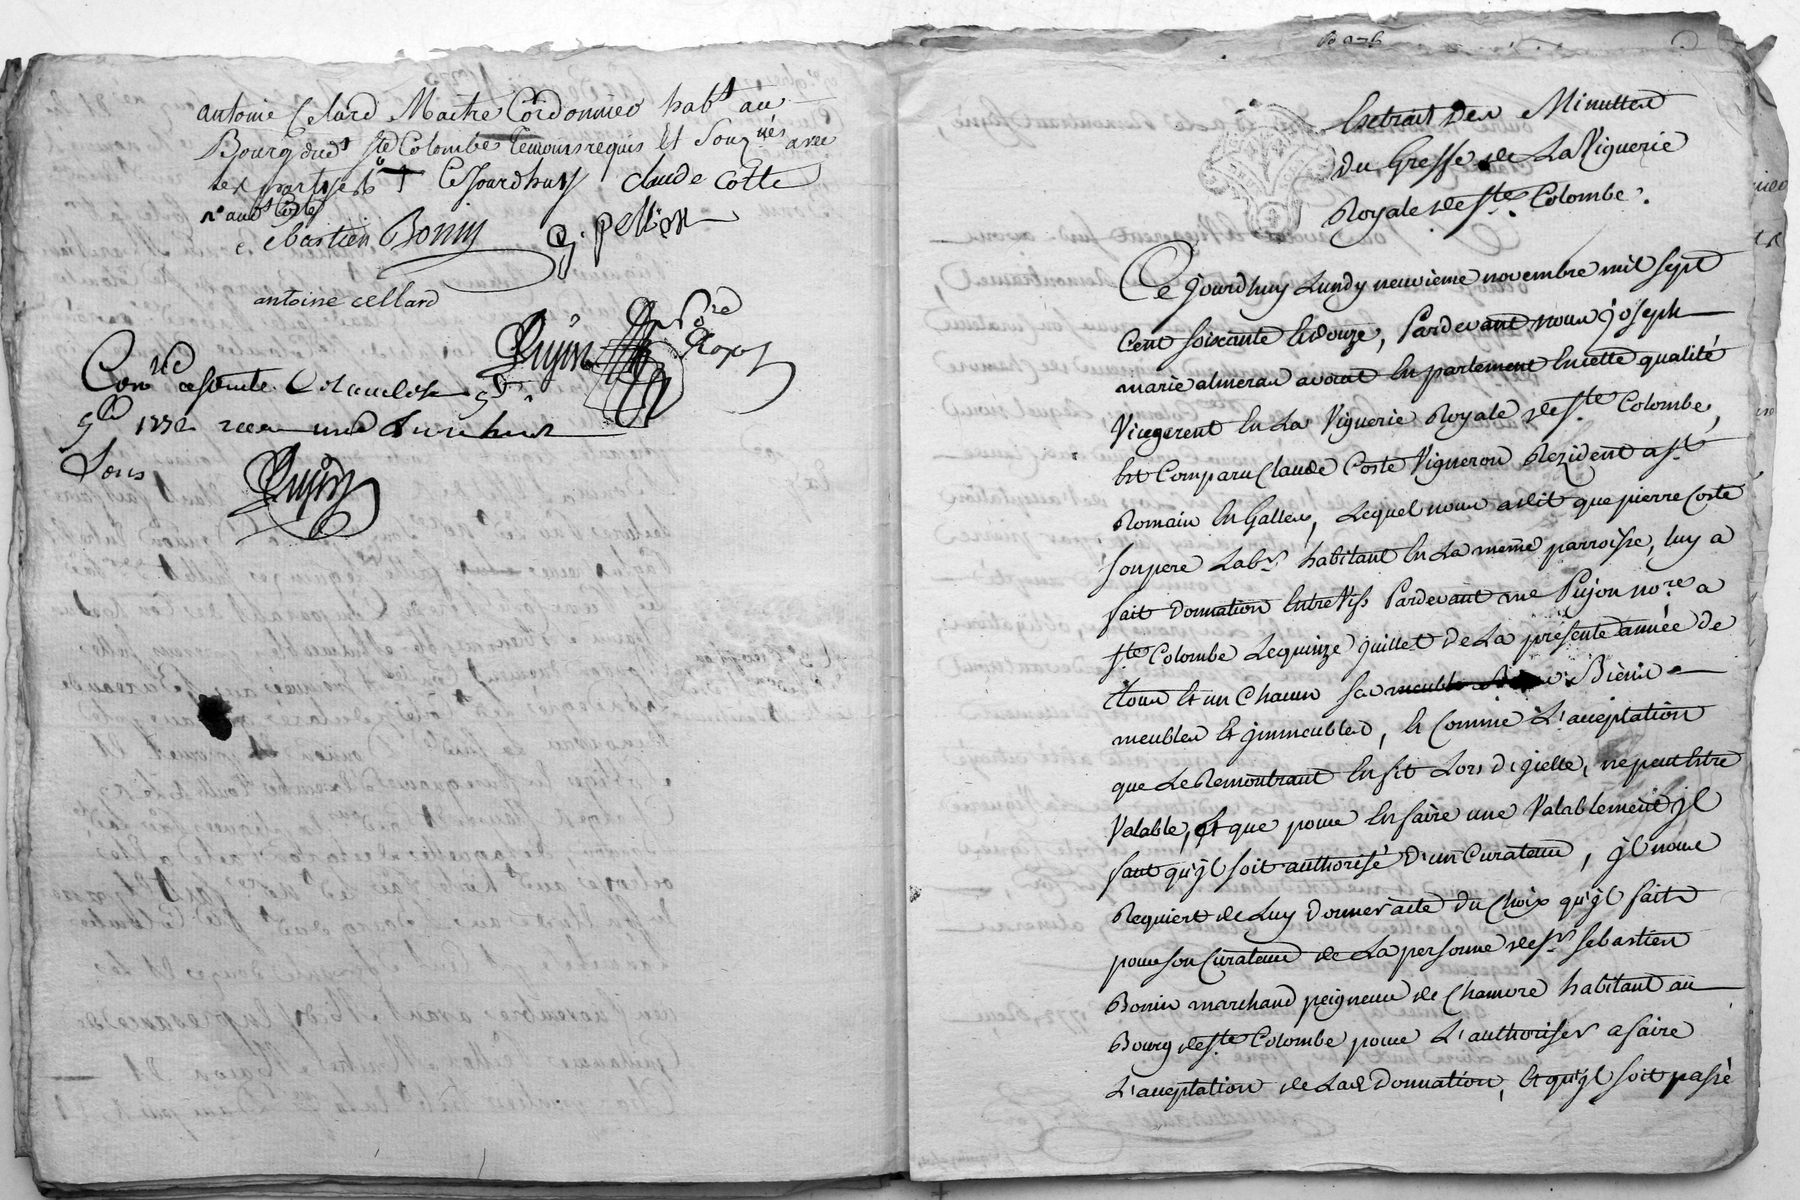 antoine Celard Maitre Cordonnier habt au
Bourg dudt Ste Colombe temoins requis Et Sousnés avec
les parties Ce jourdhuy claude Coste
Sebastien Bonin pellion
antoine cellard
Pujon nore Royal
Conlé a Ste Colombe le
1772 recu une livre huit
Sous
Pujon
Extrait Des Minuttes
du Greffe de La Viguerie
Royale de Ste Colombe.
Ce jourdhuy Lundy neuvieme novembre mil sept
Cent soixante Et douze, Pardevant nous joseph
marie almeras avocat En parlement En cette qualité
Vicegerent En La Viguerie Royale de Ste Colombe,
Est Comparu Claude Coste Vigneron Rezident a St
Romain En Galles, Lequel nous a dit que pierre Coste
son pere Labr habitant En La même parroisse, luy a
fait donnation Entre Vifs Pardevant me Pujon nore a
Ste Colombe Le quinze juillet de La présente année de
tous Et un Chacun ses Biens
meubles Et jmmeubles, Et Comme L'acceptation
que Le Remontrant En fit Lors d'jcelle, ne peut Etre
Valable, Et que pour En faire une Valablement jl
faut qu'jl soit authorisé D'un Curateur, jl nous
Requiert de Luy donner acte du Choix qu'jl fait
pour son Curateur de La personne de Sr Sebastien
Bonin marchand peigneur de Chanvre habitant au
Bourg de Ste Colombe pour L'authoriser a faire
L'acceptation de Lade Donnation, Et qu'jl soit passé